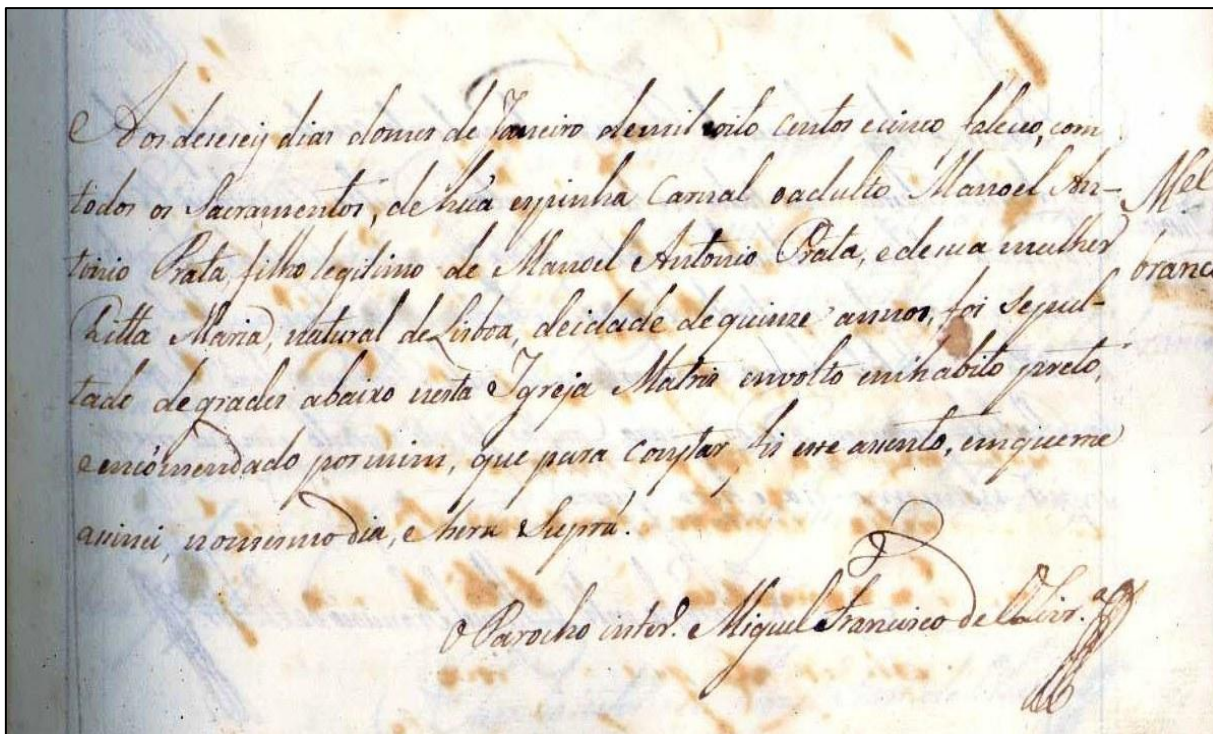 Aos deseseis dias domes de Janeiro demil oito centos ecinco, faleceo, com
todos os Sacramentos, de hũa espinha carnal oadulto Manoel An- Mel
tonio Prata, filho legitimo de Manoel Antonio Prata, e desua mulher branc
Ritta Maria, natural de Lisboa, deidade dequinze annos, foi sepul-
tado degrades abaixo nesta Igreja Matris envolto emhabito preto,
eencómendado pormim, que para constar fis este asento, emqueme
asinei, nomesmo dia, e hera Supra.
O Parocho inter.º Miguel Francisco de Olivr.ª